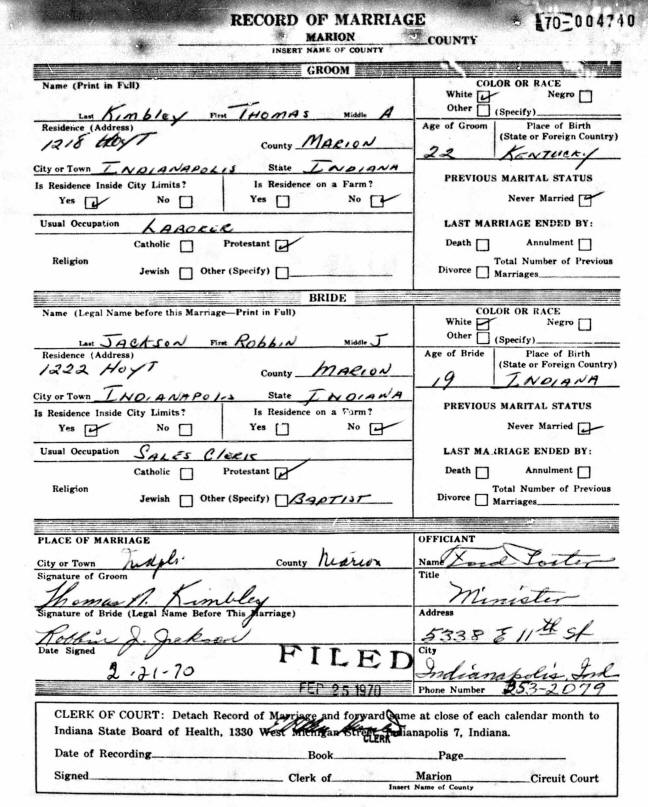 RECORD OF MARRIAGE
MARION COUNTY
INSERT NAME OF COUNTY
70-004740
GROOM
Name (Print in Full)
Last Kimbley First THOMAS Middle A
Residence (Address)
1218 HOYT County MARION
City or Town INDIANAPOLIS State INDIANA
Is Residence Inside City Limits? Is Residence on a Farm?
Yes No Yes No
Usual Occupation LABORER
Catholic Protestant
Religion
Jewish Other (Specify)
COLOR OR RACE
White Negro
Other (Specify)
Age of Groom Place of Birth
(State or Foreign Country)
22 KENTUCKY
PREVIOUS MARITAL STATUS
Never Married
LAST MARRIAGE ENDED BY:
Death Annulment
Total Number of Previous
Divorce Marriages
BRIDE
Name (Legal Name before this Marriage—Print in Full)
Last JACKSON First ROBBIN Middle J
Residence (Address)
1222 HOYT County MARION
City or Town INDIANAPOLIS State INDIANA
Is Residence Inside City Limits? Is Residence on a Farm?
Yes No Yes No
Usual Occupation SALES CLERK
Catholic Protestant
Religion
Jewish Other (Specify) BAPTIST
COLOR OR RACE
White Negro
Other (Specify)
Age of Bride Place of Birth
(State or Foreign Country)
19 INDIANA
PREVIOUS MARITAL STATUS
Never Married
LAST MARRIAGE ENDED BY:
Death Annulment
Total Number of Previous
Divorce Marriages
PLACE OF MARRIAGE
City or Town Indpls. County Marion
Signature of Groom
Thomas A. Kimbley
Signature of Bride (Legal Name Before This Marriage)
Robbin J. Jackson
Date Signed
2-21-70
FILED
FEB 25 1970
OFFICIANT
Name Foster
Title
Minister
Address
5338 E 11th St
City
Indianapolis, Ind
Phone Number 353-2079
CLERK OF COURT: Detach Record of Marriage and forward same at close of each calendar month to
Indiana State Board of Health, 1330 West Michigan Street, Indianapolis 7, Indiana.
CLERK
Date of Recording Book Page
Signed Clerk of Marion Circuit Court
Insert Name of County